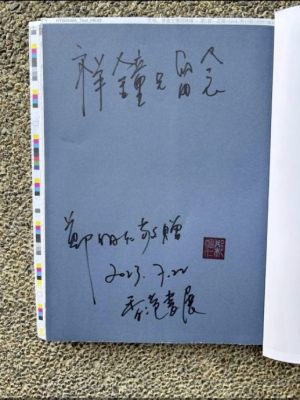 祥鐘兄留念
鄭明仁敬贈
2023.7.22
香港書展